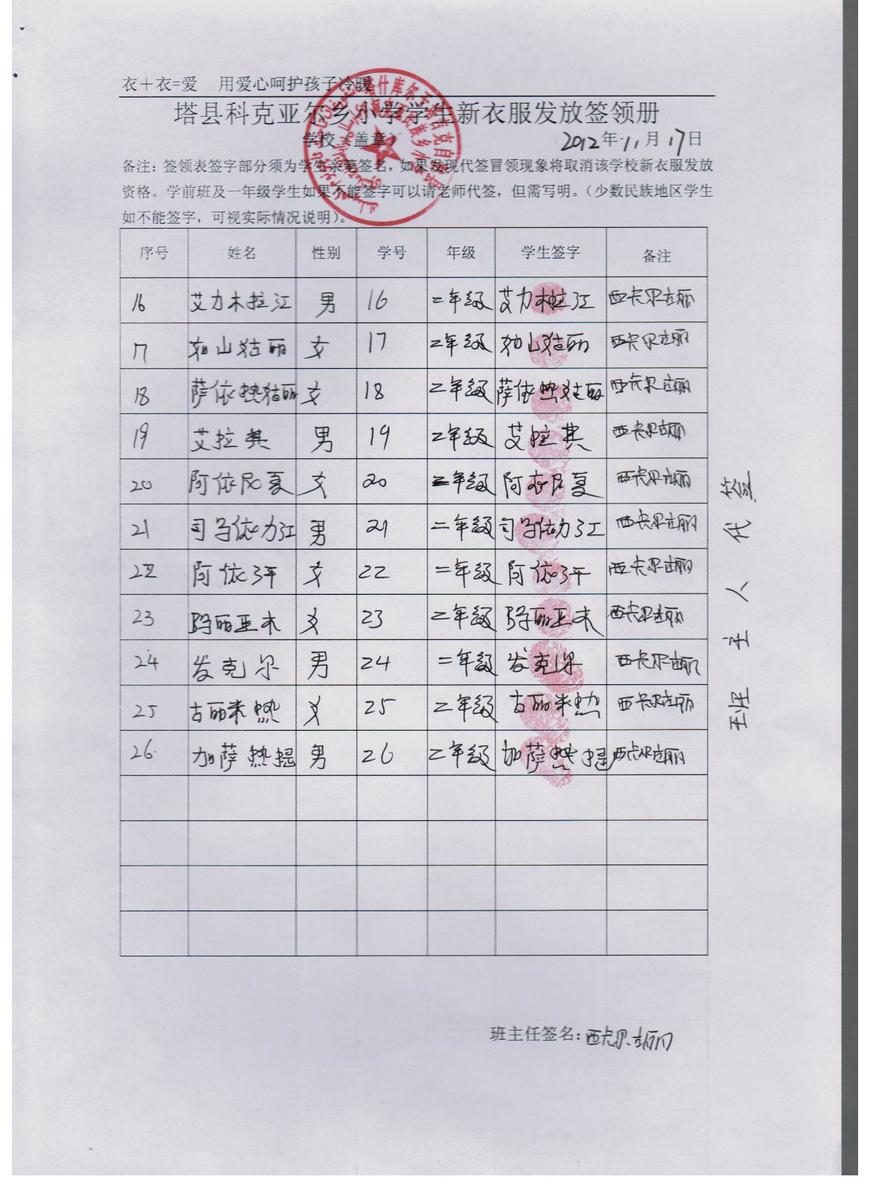 衣+衣=爱 用爱心呵护孩子冷暖
塔县科克亚尔乡小学学生新衣服发放签领册
学校 盖章 2012年11月17日
备注:签领表签字部分须为学生亲笔签名,如果发现代签冒领现象将取消该学校新衣服发放
资格。学前班及一年级学生如果不能签字可以请老师代签,但需写明。(少数民族地区学生
如不能签字,可视实际情况说明)。
序号 姓名 性别 学号 年级 学生签字 备注
16 艾力木拉江 男 16 二年级 艾力木拉江 西卡尔古丽
17 山古丽 女 17 二年级 山古丽 西卡尔古丽
18 萨依热古丽 女 18 二年级 萨依热古丽 西卡尔古丽
19 艾拉其 男 19 二年级 艾拉其 西卡尔古丽
20 阿依尼夏 女 20 二年级 阿衣尼夏 西卡尔古丽
21 司子依力江 男 21 二年级 司子依力江 西卡尔古丽
22 阿依 女 22 二年级 阿依 西卡尔古丽
23 丽亚木 女 23 二年级 丽亚木 西卡尔古丽
24 发克尔 男 24 二年级 发克尔 西卡尔古丽
25 古丽米热 女 25 二年级 古丽米热 西卡尔古丽
26 加萨热提 男 26 二年级 加萨热提 西卡尔古丽
班主人代签
班主任签名:西卡尔古丽